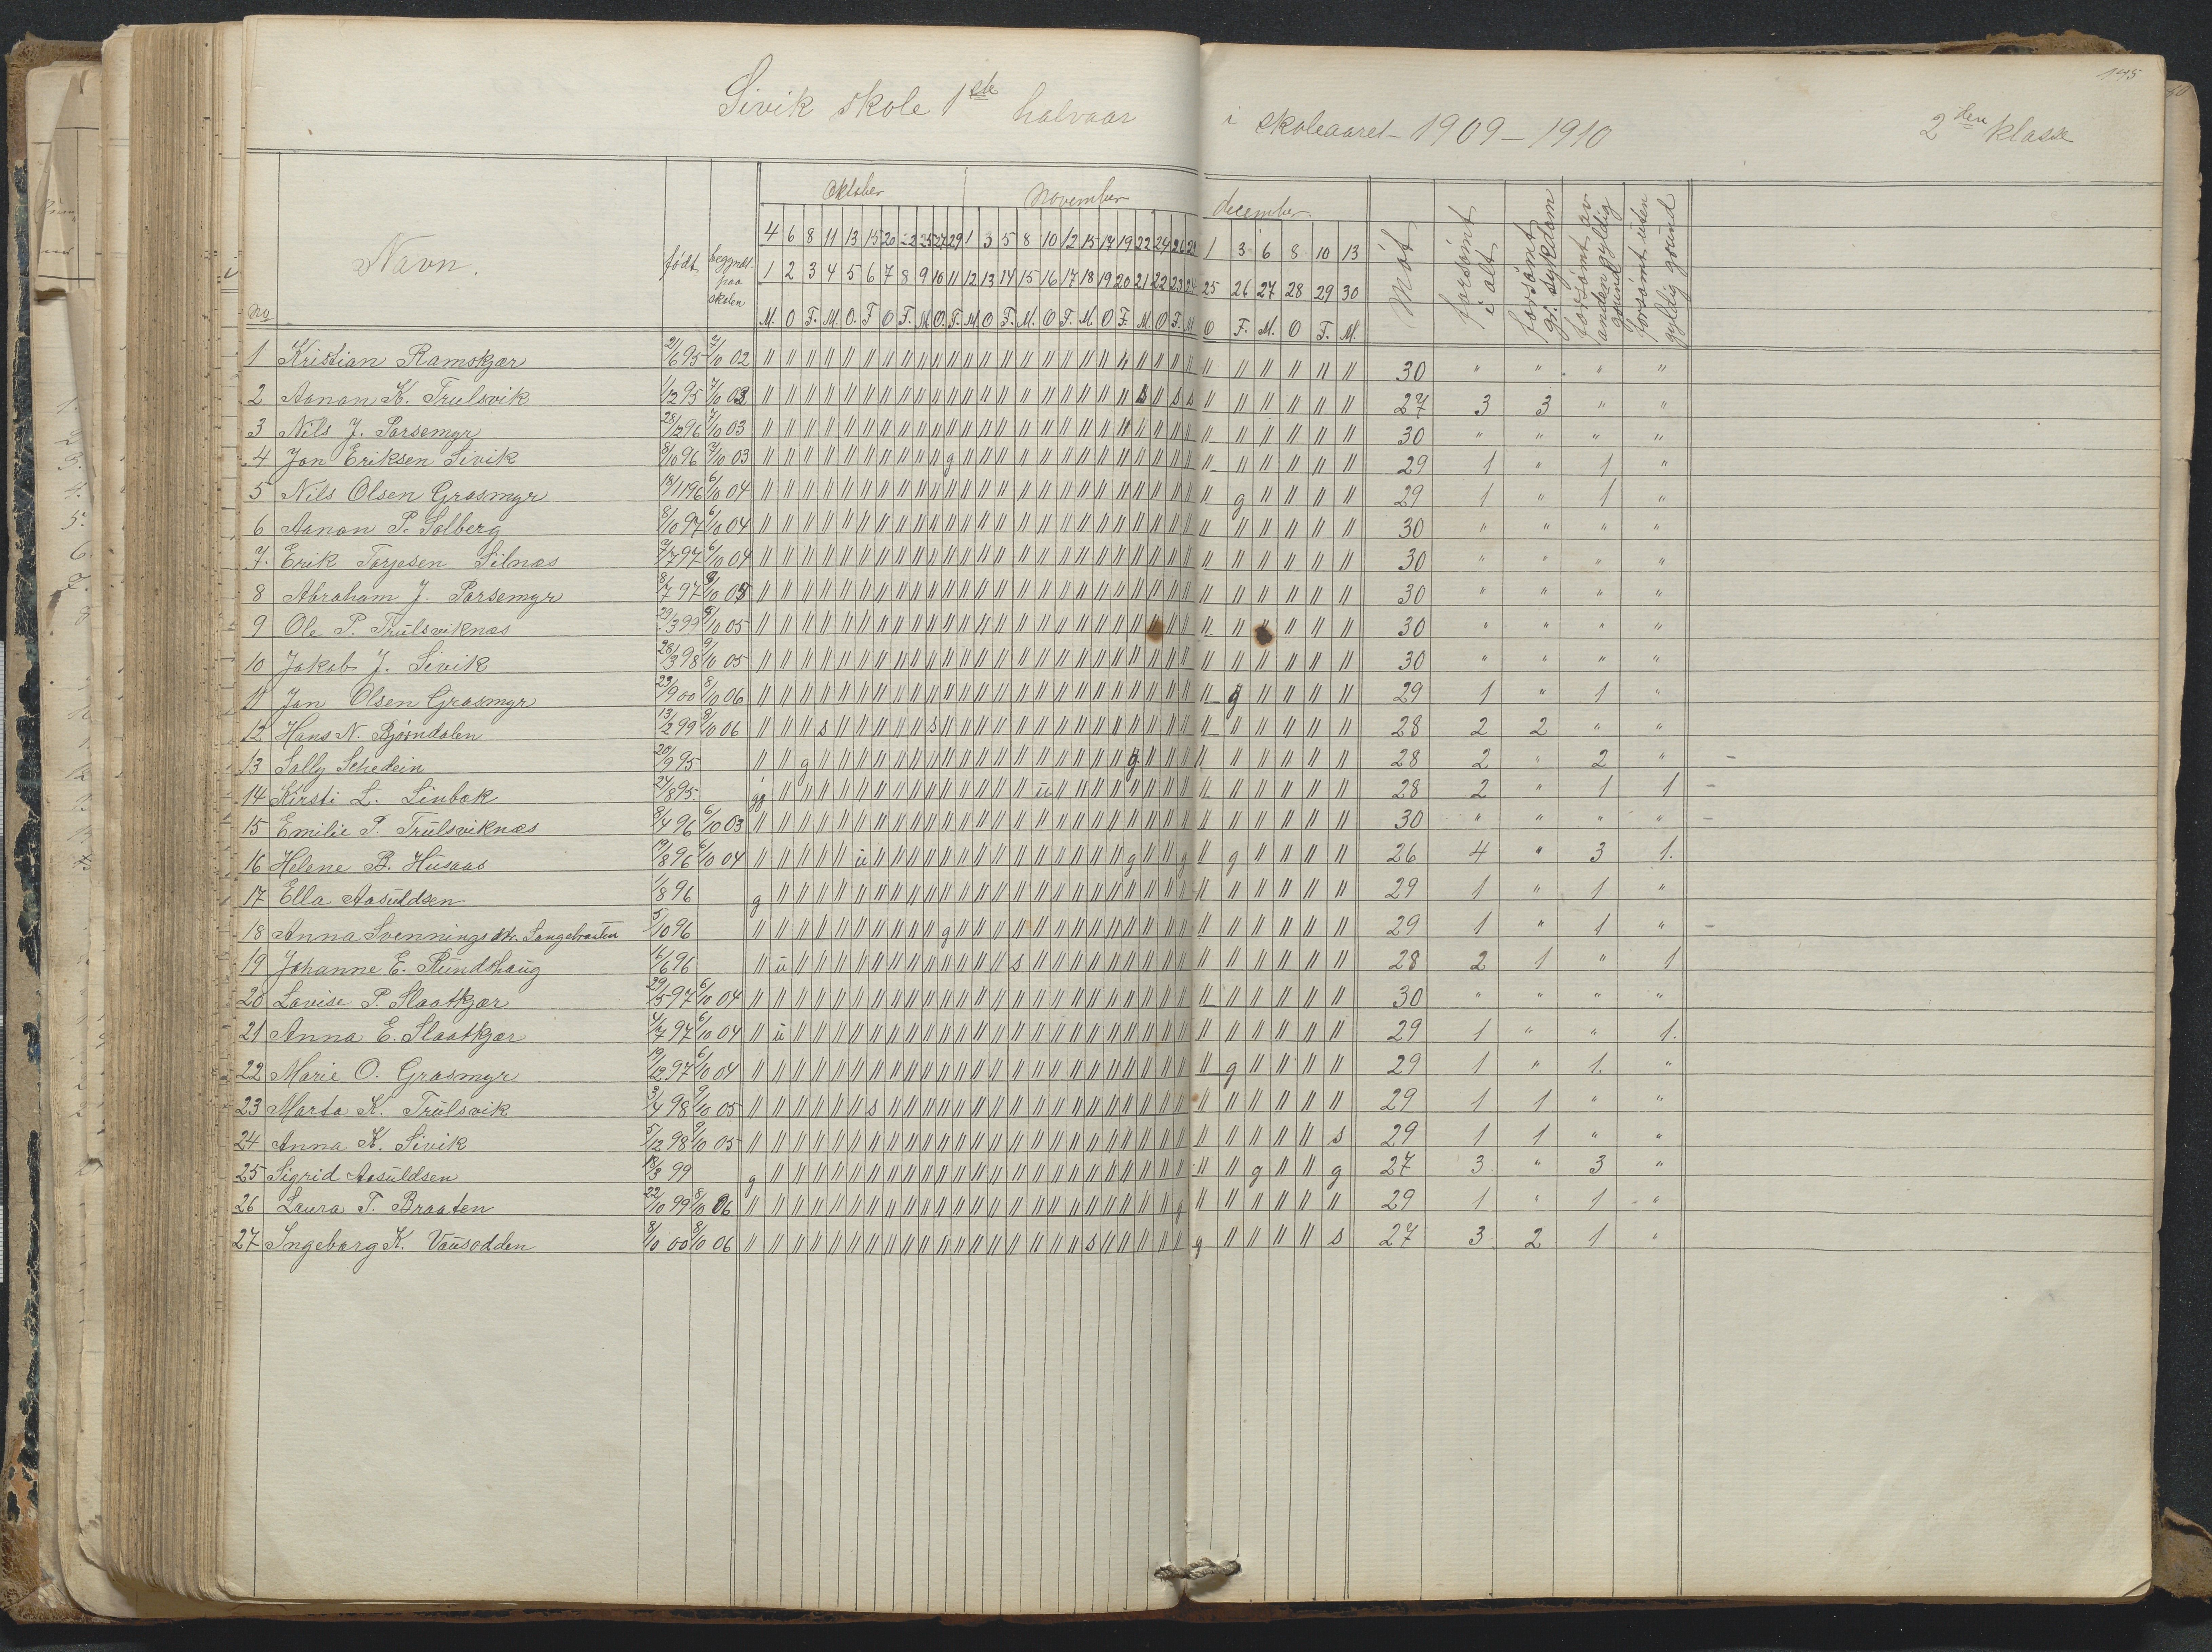 175
Sivik skole 1ste halvaar i skoleaaret 1909–1910 2den klasse
No Navn. født begyndt paa skolen Oktober November december. Møt forsømt i alt forsømt gr. sykdom forsømt av anden gyldig grund forsømt uten gyldig grund
4 6 8 11 13 15 20 22 25 27 29 1 3 5 8 10 12 15 17 19 22 24 26 29 1 3 6 8 10 13
1 2 3 4 5 6 7 8 9 10 11 12 13 14 15 16 17 18 19 20 21 22 23 24 25 26 27 28 29 30
M. O F. M. O. F O F. M. O. F. M O F. M. O F. M. O F. M O F. M O F. M. O F. M.
1 Kristian Ramskjær 2/10 02 30 " " " "
2 Aanon K. Trulsvik 1/12 95 7/10 03 s s s 27 3 3 " "
3 Nils J. Porsemyr 28/12 96 7/10 03 30 " " " "
4 Jon Eriksen Sivik 8/10 96 7/10 03 g 29 1 " 1 "
5 Nils Olsen Grasmyr 18/11 96 6/10 04 g 29 1 " 1 "
6 Aanon P. Solberg 8/10 97 6/10 04 30 " " " "
7. Erik Torjesen Silnæs 7/7 97 6/10 04 30 " " " "
8 Abraham J. Porsemyr 8/7 97 30 " " " "
9 Ole P. Trulsviknæs 29/3 99 9/10 05 30 " " " "
10 Jakob J. Sivik 28/3 98 9/10 05 30 " " " "
11 Jon Olsen Grasmyr 23/9 00 8/10 06 g 29 1 " 1 "
12 Hans N. Bjørndalen 13/12 99 8/10 06 s s 28 2 2 " "
13 Sally Schedein 20/9 95 g g 28 2 " 2 " –
14 Kirsti L. Linbæk 24/8 95. g u 28 2 " 1 1 –
15 Emilie P. Trulsviknæs 8/4 96 6/10 03 30 " " " " –
16 Helene B. Husaas 19/8 96 6/10 04 u g g g 26 4 " 3 1.
17 Ella Aasuldsen 1/8 96 g 29 1 " 1 "
18 Anna Svennings dtr. Langebraaten 5/10 96 g 29 1 " 1 " –
19 Johanne E. Rundshaug 6/6 96 u s 28 2 1 " 1
20 Lovise P. Slaatkjær 29/5 97 6/10 04 30 " " " "
21 Anna E. Slaatkjær 4/7 97 6/10 04 u 29 1 " " 1.
22 Marie O. Grasmyr 19/12 97 6/10 04 g 29 1 " 1. "
23 Marta K. Trulsvik 3/4 98 9/10 05 s 29 1 1 " "
24 Anna K. Sivik 5/12 98 9/10 05 s 29 1 1 " "
25 Sigrid Aasuldsen 18/3 99 g g g 27 3 " 3 "
26 Laura T. Braaten 22/10 99 8/10 06 g 29 1 " 1 "
27 Ingeborg K. Vausodden 8/10 00 8/10 06 s g s 27 3 2 1 "